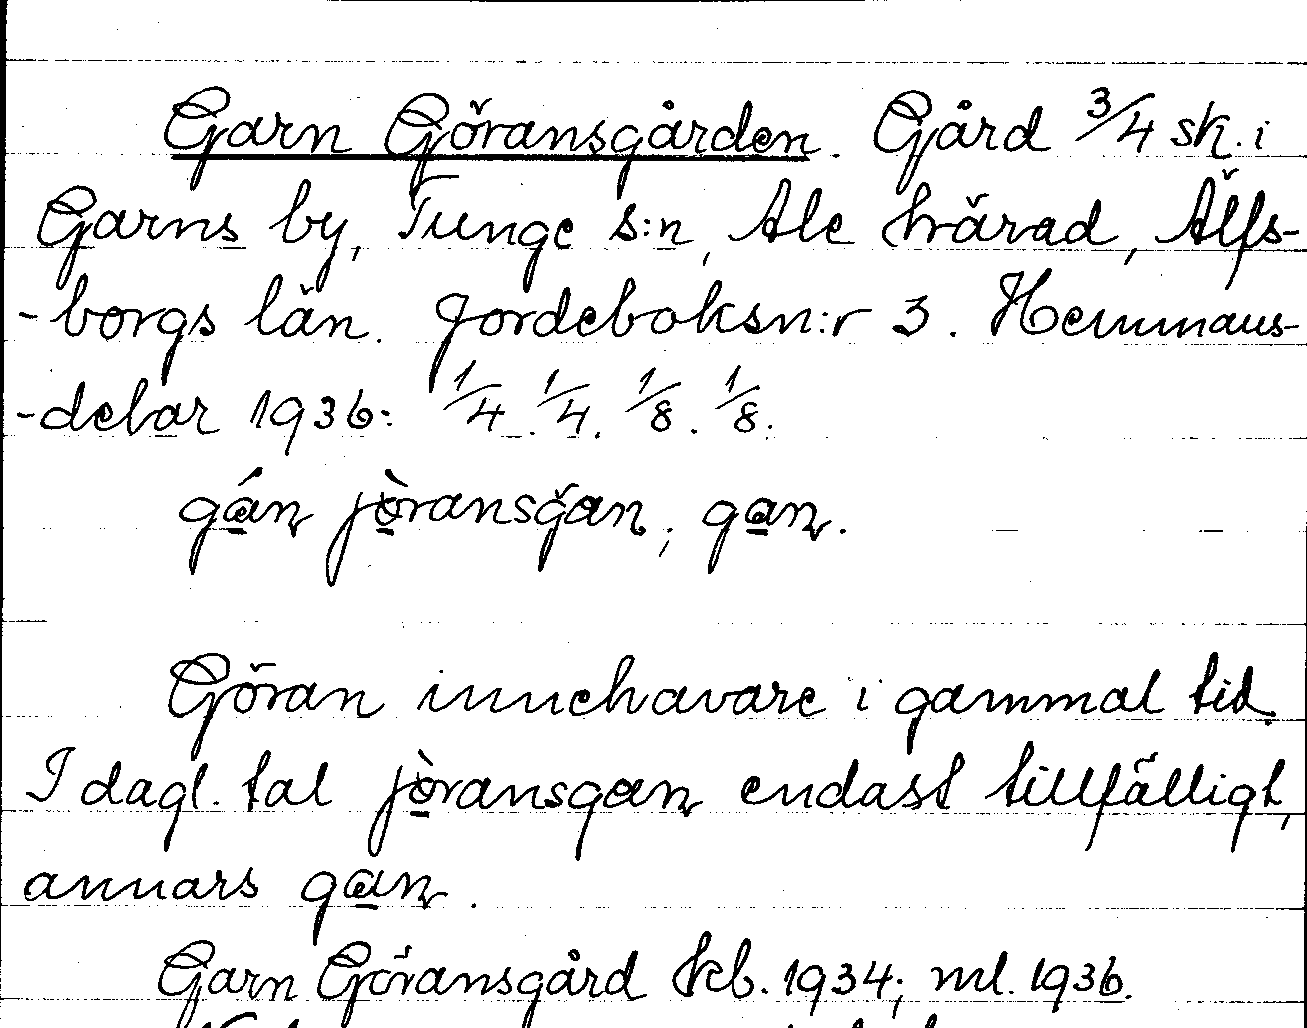 Garn Göransgården. Gård 3/4 sk. i
Garns by, Tunge s:n, Ale härad, Älfs-
-borgs län. Jordeboksn:r 3. Hemmans-
-delar 1936: 1/4. 1/4. 1/8. 1/8.
gán jòransgan; gan.
Göran innehavare i gammal tid.
I dagl. tal jòransgan endast tillfälligt,
annars gan.
Garn Göransgård kb. 1934; ml. 1936.